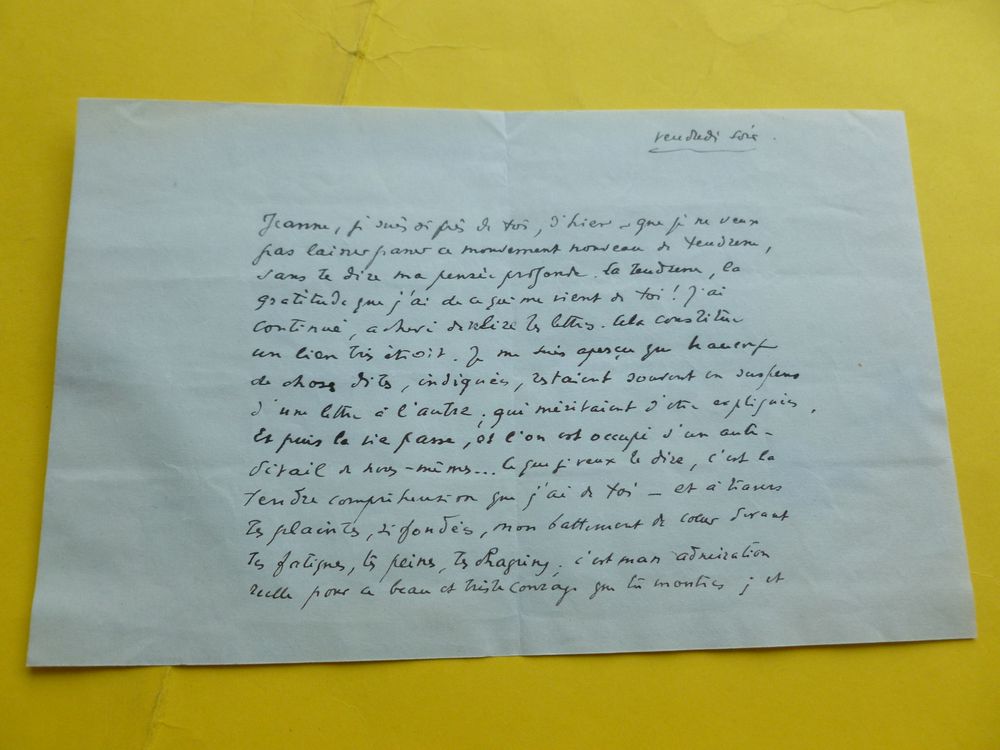 vendredi soir.
Jeanne, je suis si près de toi, d'hier que je ne veux
pas laisser passer ce mouvement nouveau de tendresse,
sans te dire ma pensée profonde. la tendresse, la
gratitude que j'ai de ce qui me vient de toi ! J'ai
continué, achevé de relire tes lettres. Cela constitue
un lien très étroit. Je me suis aperçu que beaucoup
de choses dites, indiquées, restaient souvent en suspens
d'une lettre à l'autre, qui méritaient d'être expliquées.
Et puis la vie passe, et l'on est occupé d'un autre
détail de nous-mêmes... Ce que je veux te dire, c'est la
tendre compréhension que j'ai de toi – et à travers
tes plaintes, si fondées, mon battement de cœur devant
tes fatigues, tes peines, tes chagrins. c'est mon admiration
réelle pour ce beau et triste courage que tu montres ; et